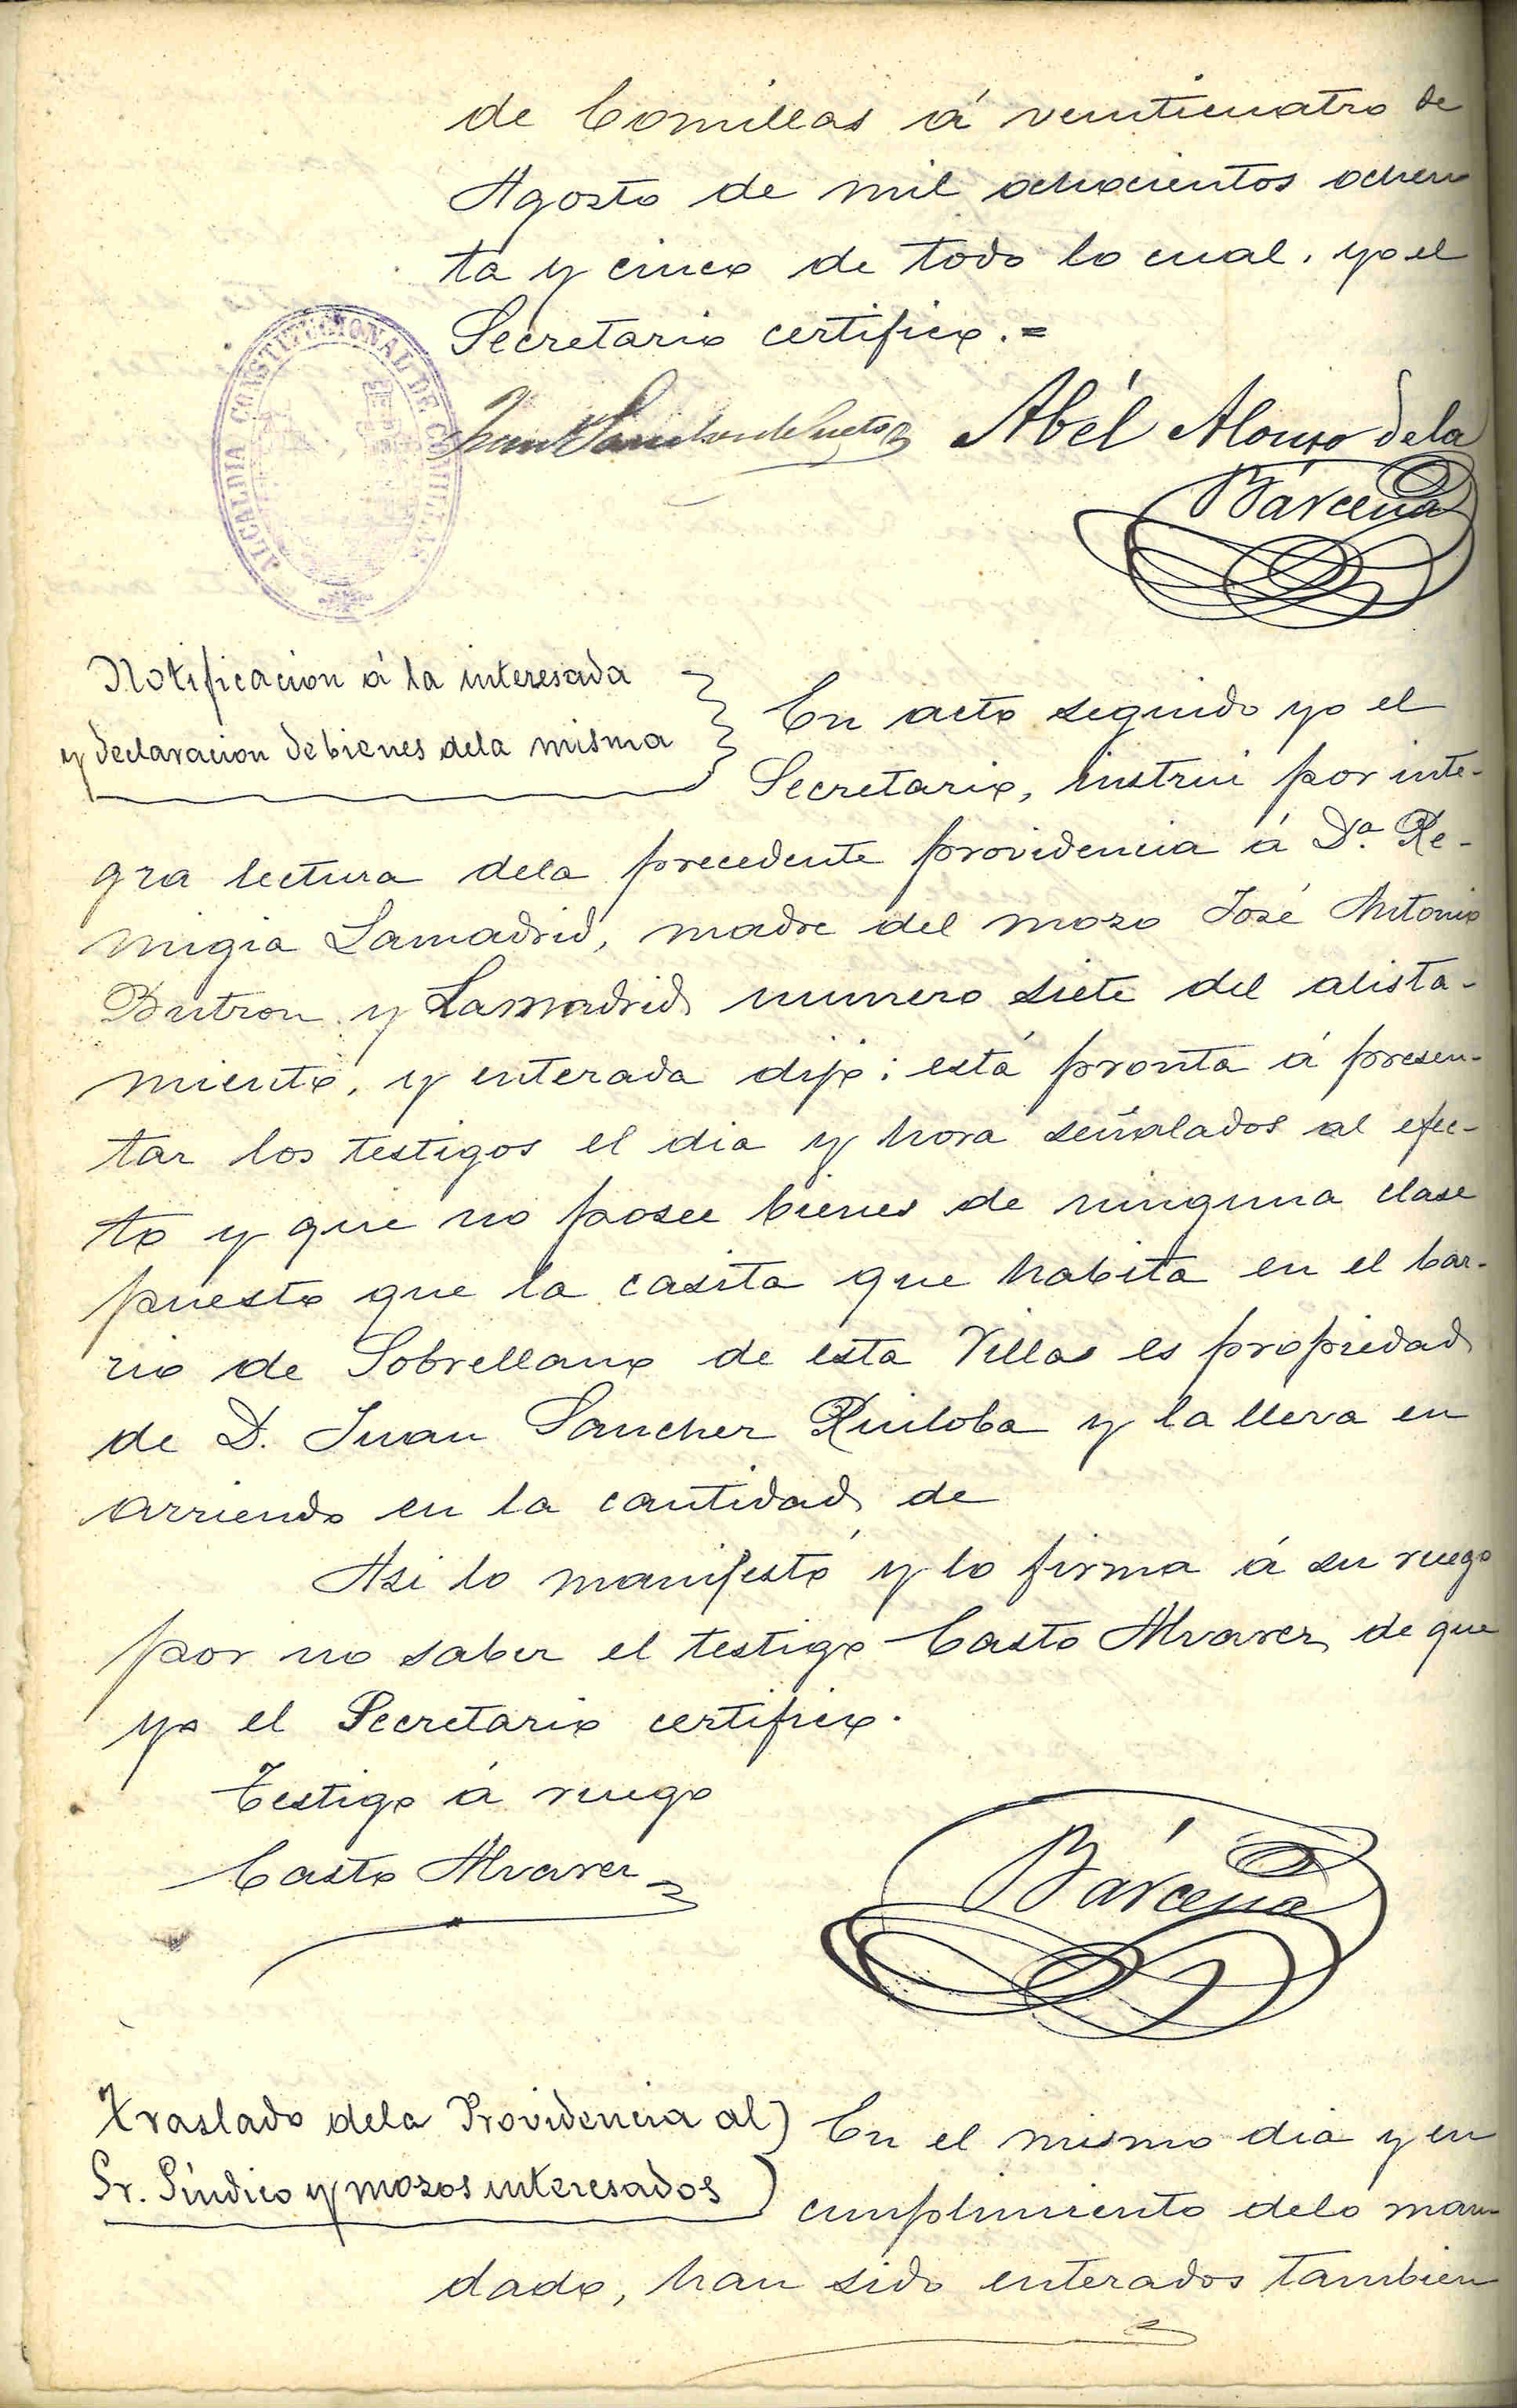 de Comillas á veinticuatro de
Agosto de mil ochocientos ochen
ta y cinco de todo lo cual, yo el
Secretario certifico.=
ALCALDIA CONSTITUCIONAL DE COMILLAS
Juan Abél Alonso dela
Bárcena
Notificacion á la interesada
y declaracion de bienes dela misma
En acto seguido yo el
Secretario, instrui por inte-
gra lectura dela precedente providencia á Dª. Re-
migia Lamadrid, madre del mozo José Antonio
Butron y Lamadrid numero siete del alista-
miento, y enterada dijo: está pronta á presen-
tar los testigos el dia y hora señalados al efec-
to y que no posee bienes de ninguna clase
puesto que la casita que habita en el bar-
rio de Sobrellano de esta Villa es propiedad
de D. Juan Sanchez Ruiloba y la lleva en
arriendo en la cantidad de
Asi lo manifestó y lo firma á su ruego
por no saber el testigo Casto Alvarez, de que
yo el Secretario certifico.
Testigo á ruego
Casto Alvarez
Bárcena
Traslado dela Providencia al
Sr. Síndico y mozos interesados
En el mismo dia y en
cumplimiento delo man
dado, han sido enterados tambien